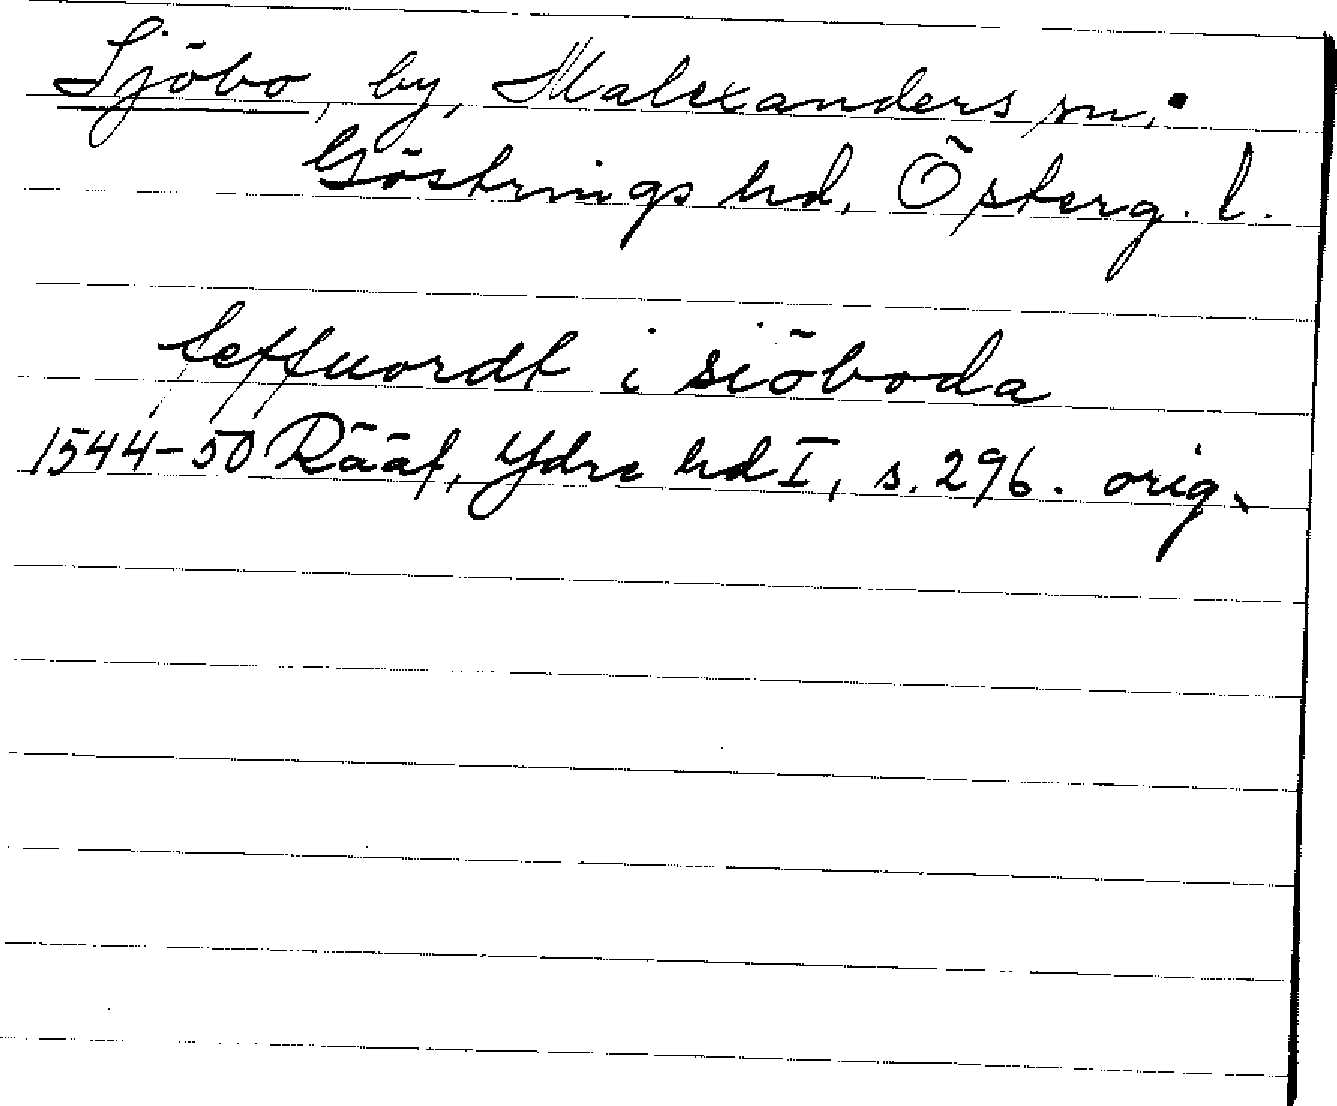 Sjöbo, by, Malexanders sn,
Göstrings hd, Österg. l.
leffuordt i siöboda
1544-50 Rääf, Ydre hd I, s. 296. orig.